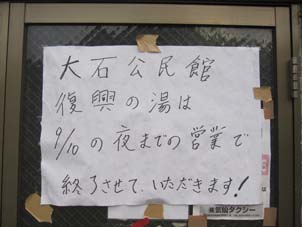 大石公民館
復興の湯は
9/10の夜までの営業で
終了させて、いただきます!
㈱気仙タクシー